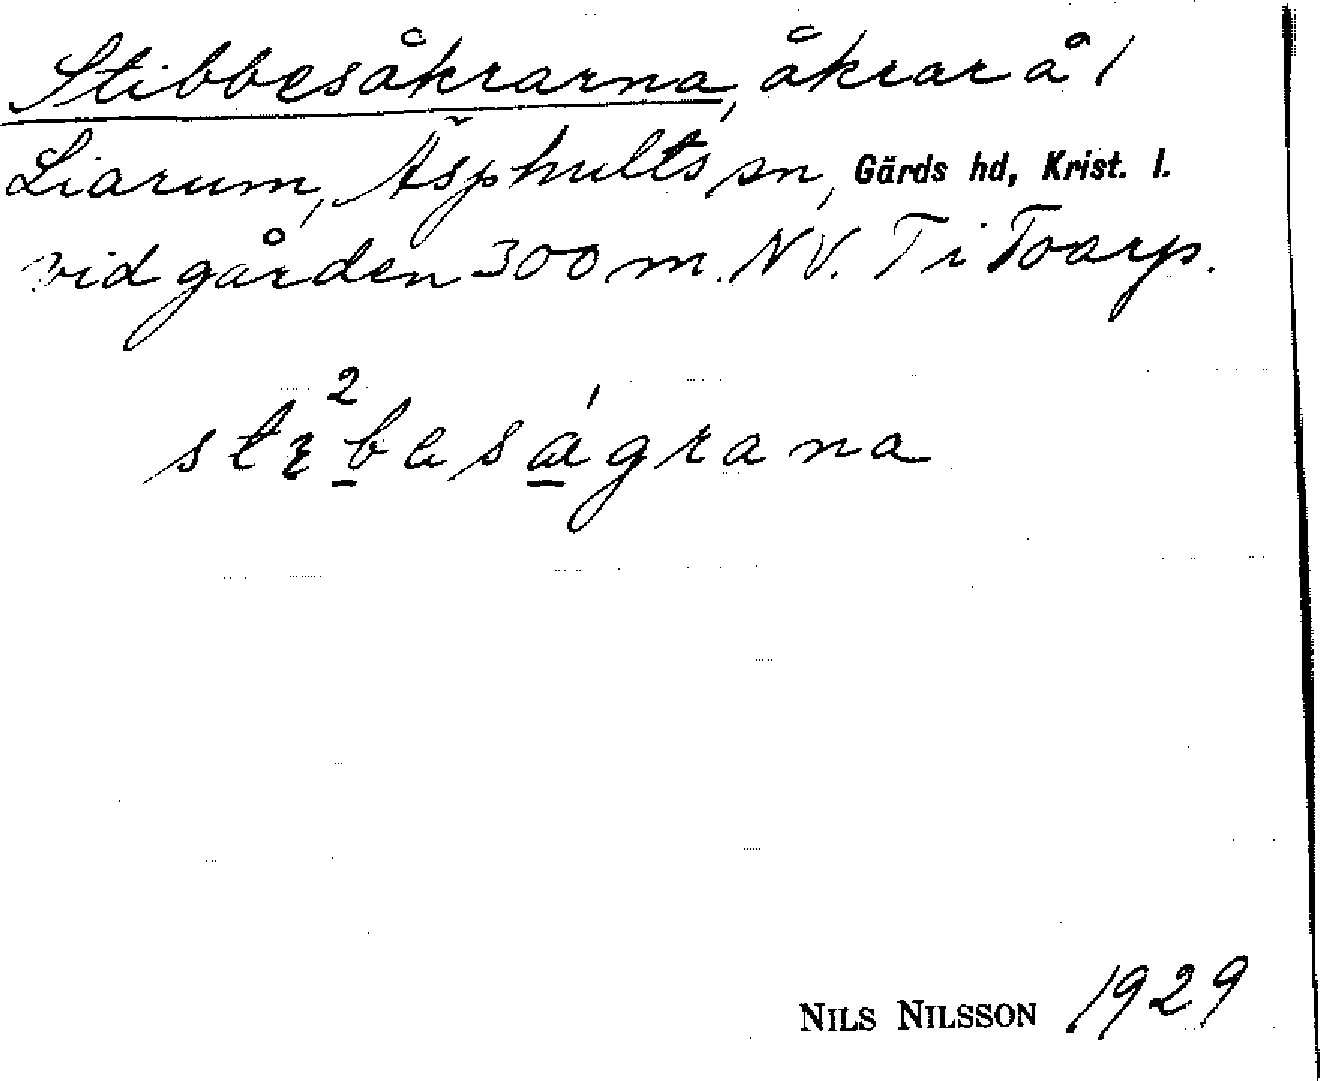 Stibbesåkrarna, åkrar å 1
Liarum, Äsphults sn, Gärds hd, Krist. l.
vid gården 300 m. NV. T i Toarp.
stɪ²b̲esa̲ágrana
NILS NILSSON 1929